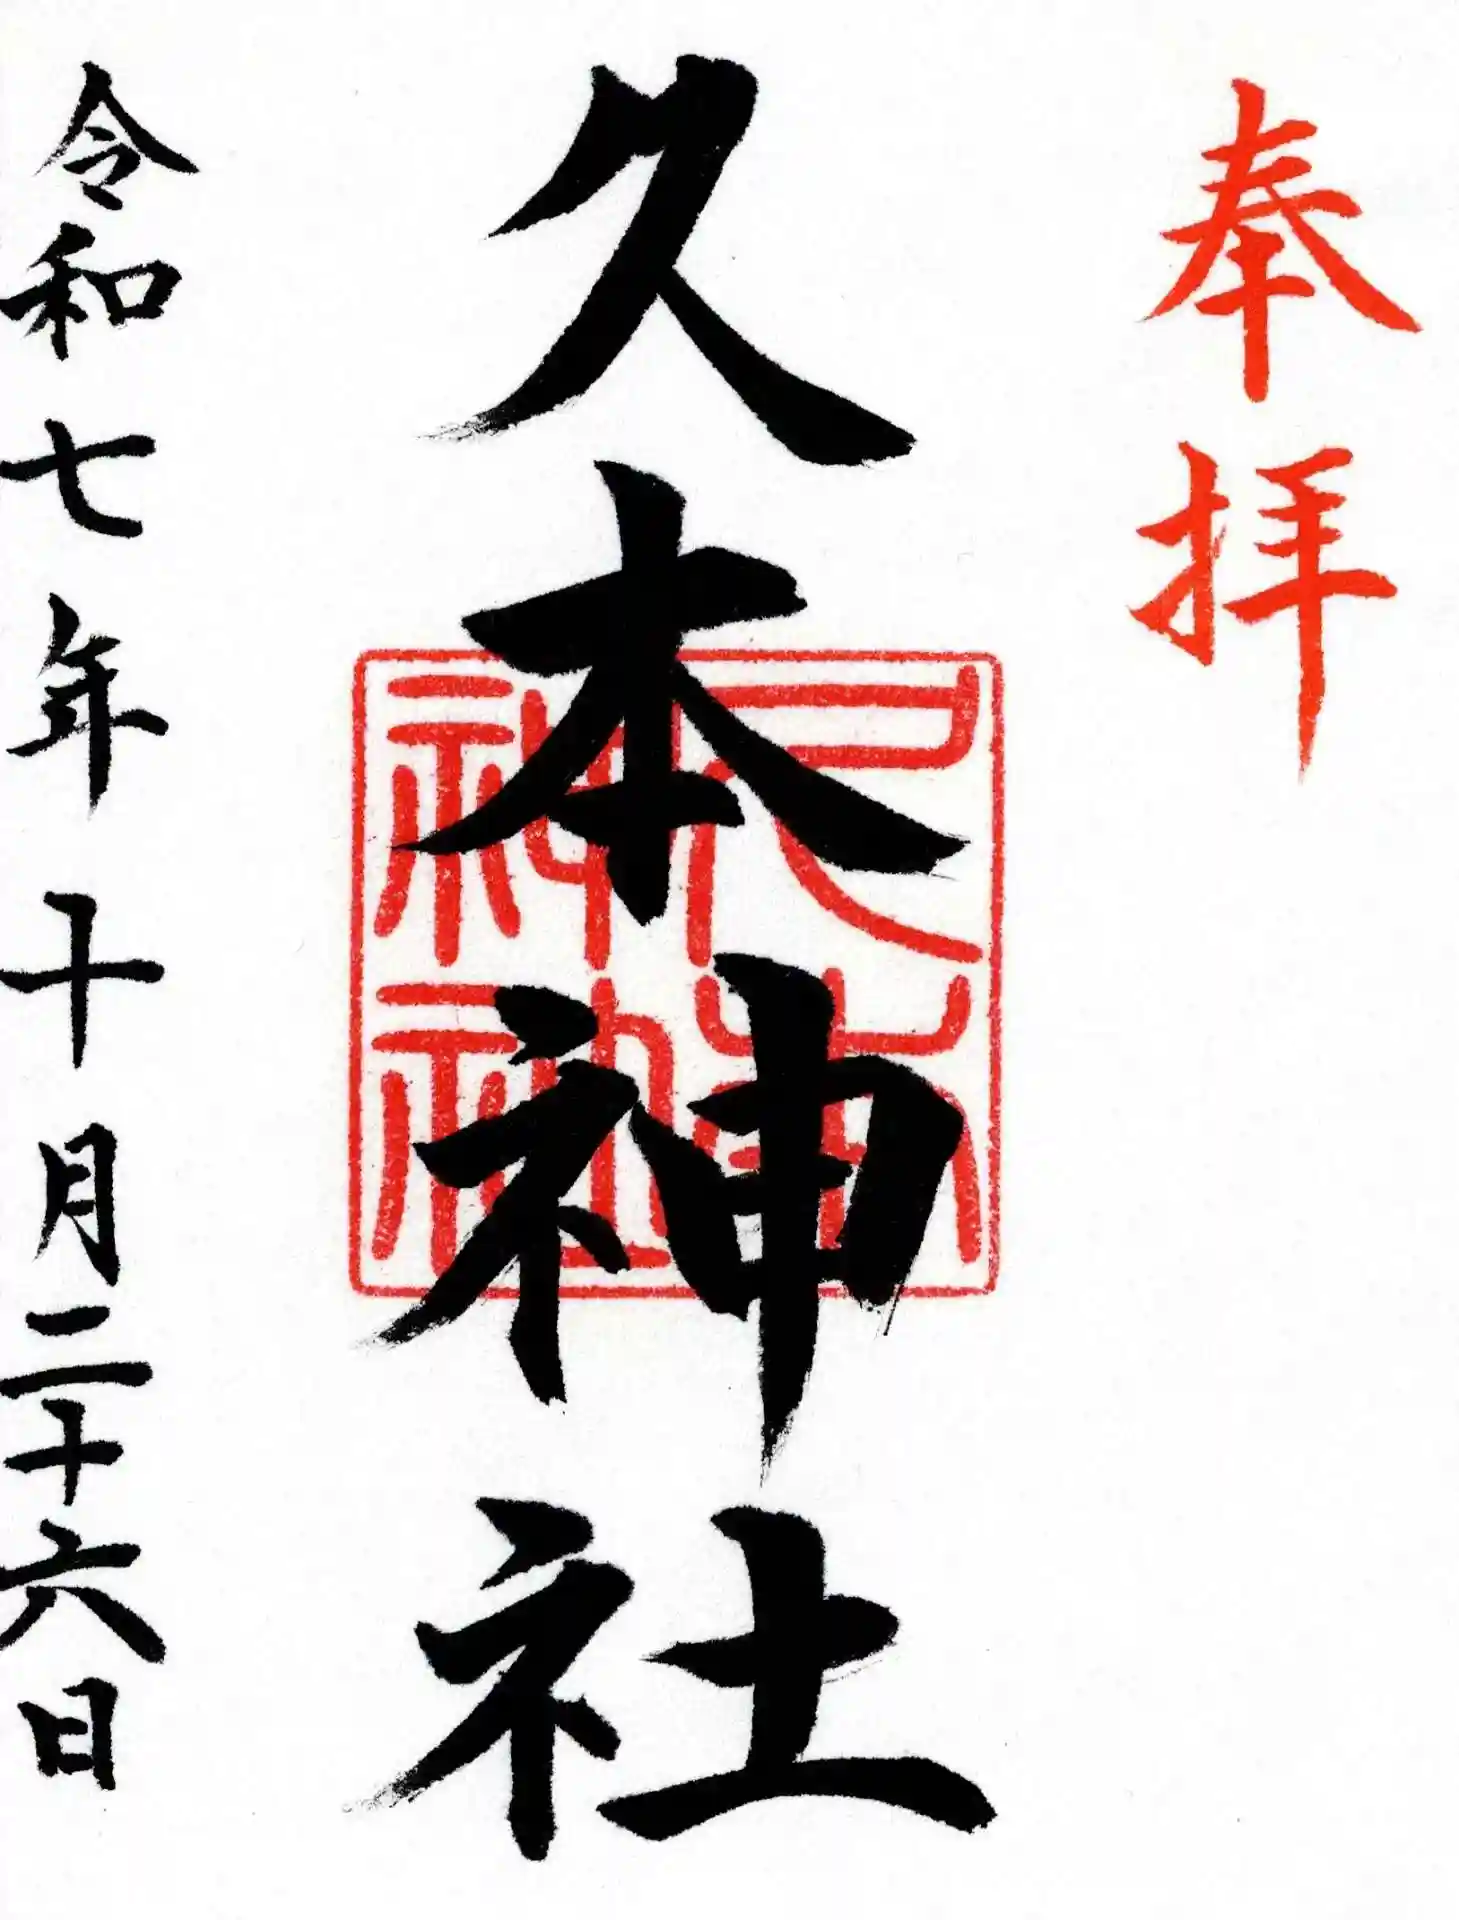 奉拝
久本神社
久本神社
令和七年十月二十六日